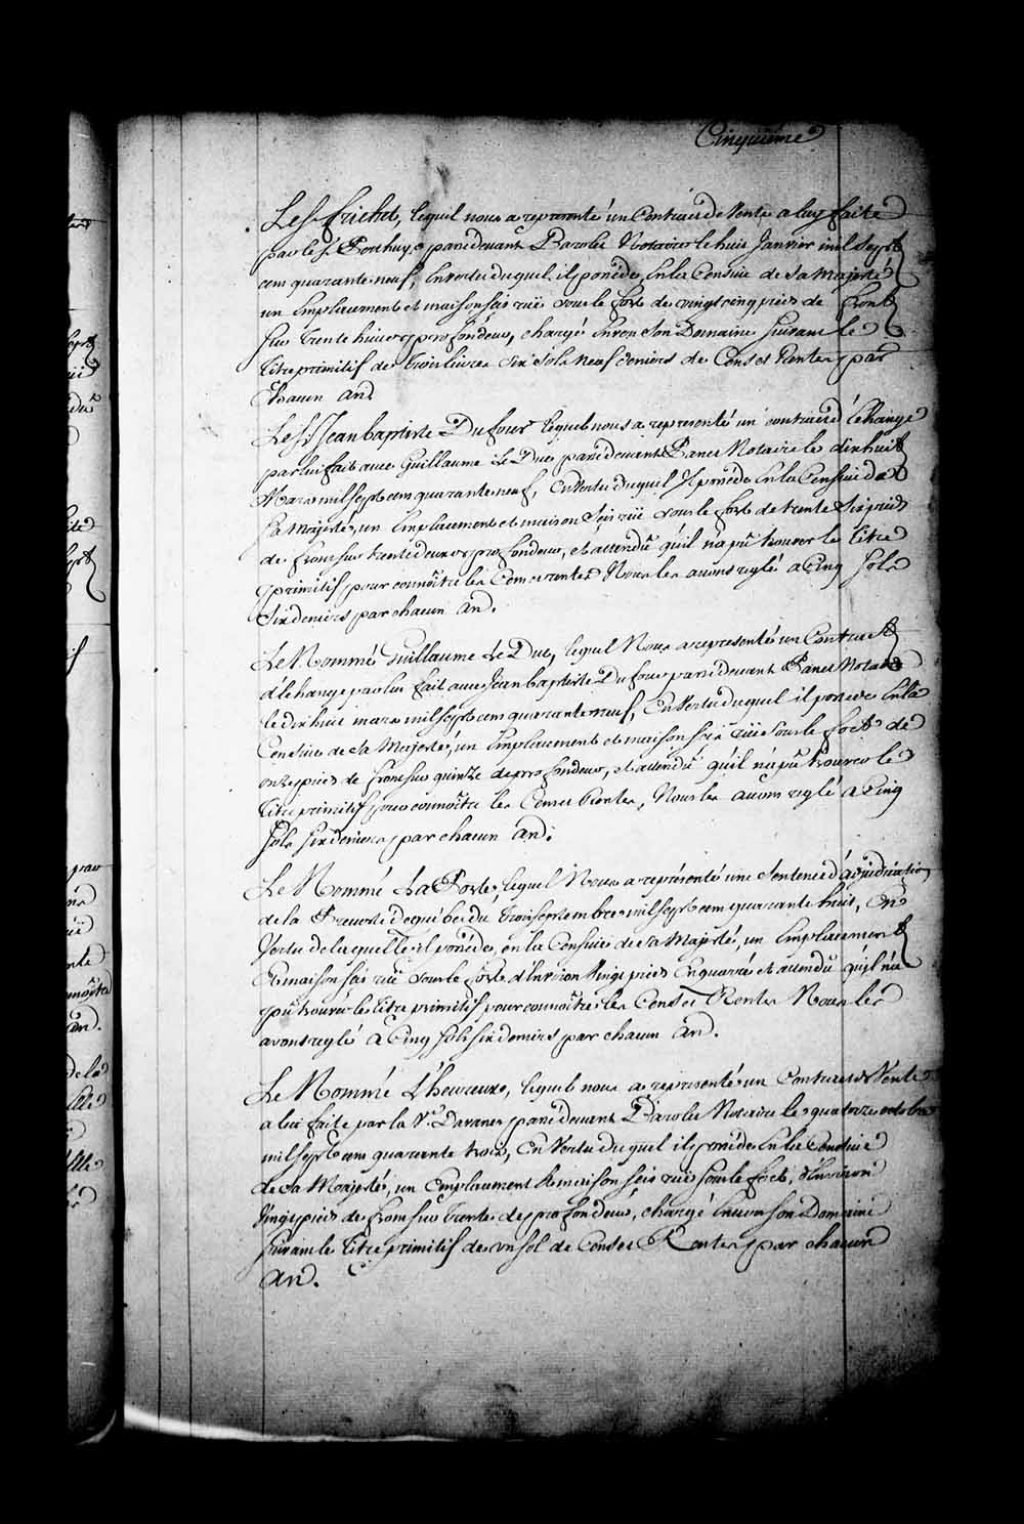 Cinquiéme
Le Sr. frichet, lequel nous a representé un Contract de Vente a luy faite
par le Sr. pardevant Barolet Notaire le huit Janvier mil sept
cent quarante neuf, En vertu duquel il possede En la Censive de Sa Majesté
un Emplacement et maison sis ruë sous le fort de vingt cinq pieds de front
sur trente huit de profondeur, chargé Envers Son Domaine suivant le
titre primitif de trois livres Six sols neuf deniers de Cens et Rentes par
Chacun an
Le Sr. Jean baptiste Dufour lequel nous a representé un contract d'Echange
par lui fait avec Guillaume Le Duc pardevant Panet Notaire le dix huit
Mars mil sept cent quarante neuf, En Vertu duquel Il possede En la Censive de
Sa Majesté, un Emplacement et maison Sis ruë sous le fort de trente Six pieds
de front sur trente deux de profondeur, et attendû qu'il n'a pû trouver le titre
primitif pour connoître les Cens et rentes Nous les avons reglé a Cinq Sols
Six deniers par chacun an.
Le Nommé Guillaume Le Duc, lequel Nous a representé un Contract
d'Echange par lui fait avec Jean baptiste Dufour pardevant Panet Notaire
le dix huit mars mil sept cent quarante neuf, En Vertu duquel il possede En la
Censive de Sa Majesté, un Emplacement et maison sis ruë sous le fort de
onze pieds de front sur quinze de profondeur, et attendû qu'il n'a pû trouver le
titre primitif pour connoître les Cens et Rentes, Nous les avons reglé a Cinq
Sols six deniers par chacun an.
Le Nommé La Porte, lequel Nous a représenté une Sentence d'adjudication
de la Prevosté de quebec du trois septembre mil sept cent quarante huit, En
Vertu de laquelle il possede, en la Censive de Sa Majesté, un Emplacement
Et maison sis ruë sous le fort d'Environ Vingt pieds En quarré et attendu qu'il n'a
pû trouver le titre primitif pour connoître les Cens et Rentes Nous les
avons reglé a Cinq sols six deniers par chacun an.
Le Nommé L'heureux, lequel nous a representé un Contract de Vente
a lui faite par la Ve. pardevant Barolet Notaire le quatorze octobre
mil sept cent quarante trois, En Vertu duquel il possede En la Censive
de Sa Majesté, un Emplacement Et maison sis ruë sous le fort, d'Environ
Vingt pieds de front sur trente de profondeur, chargé Envers son Domaine
suivant le titre primitif de un sol de Cens et Rentes par chacun
an.